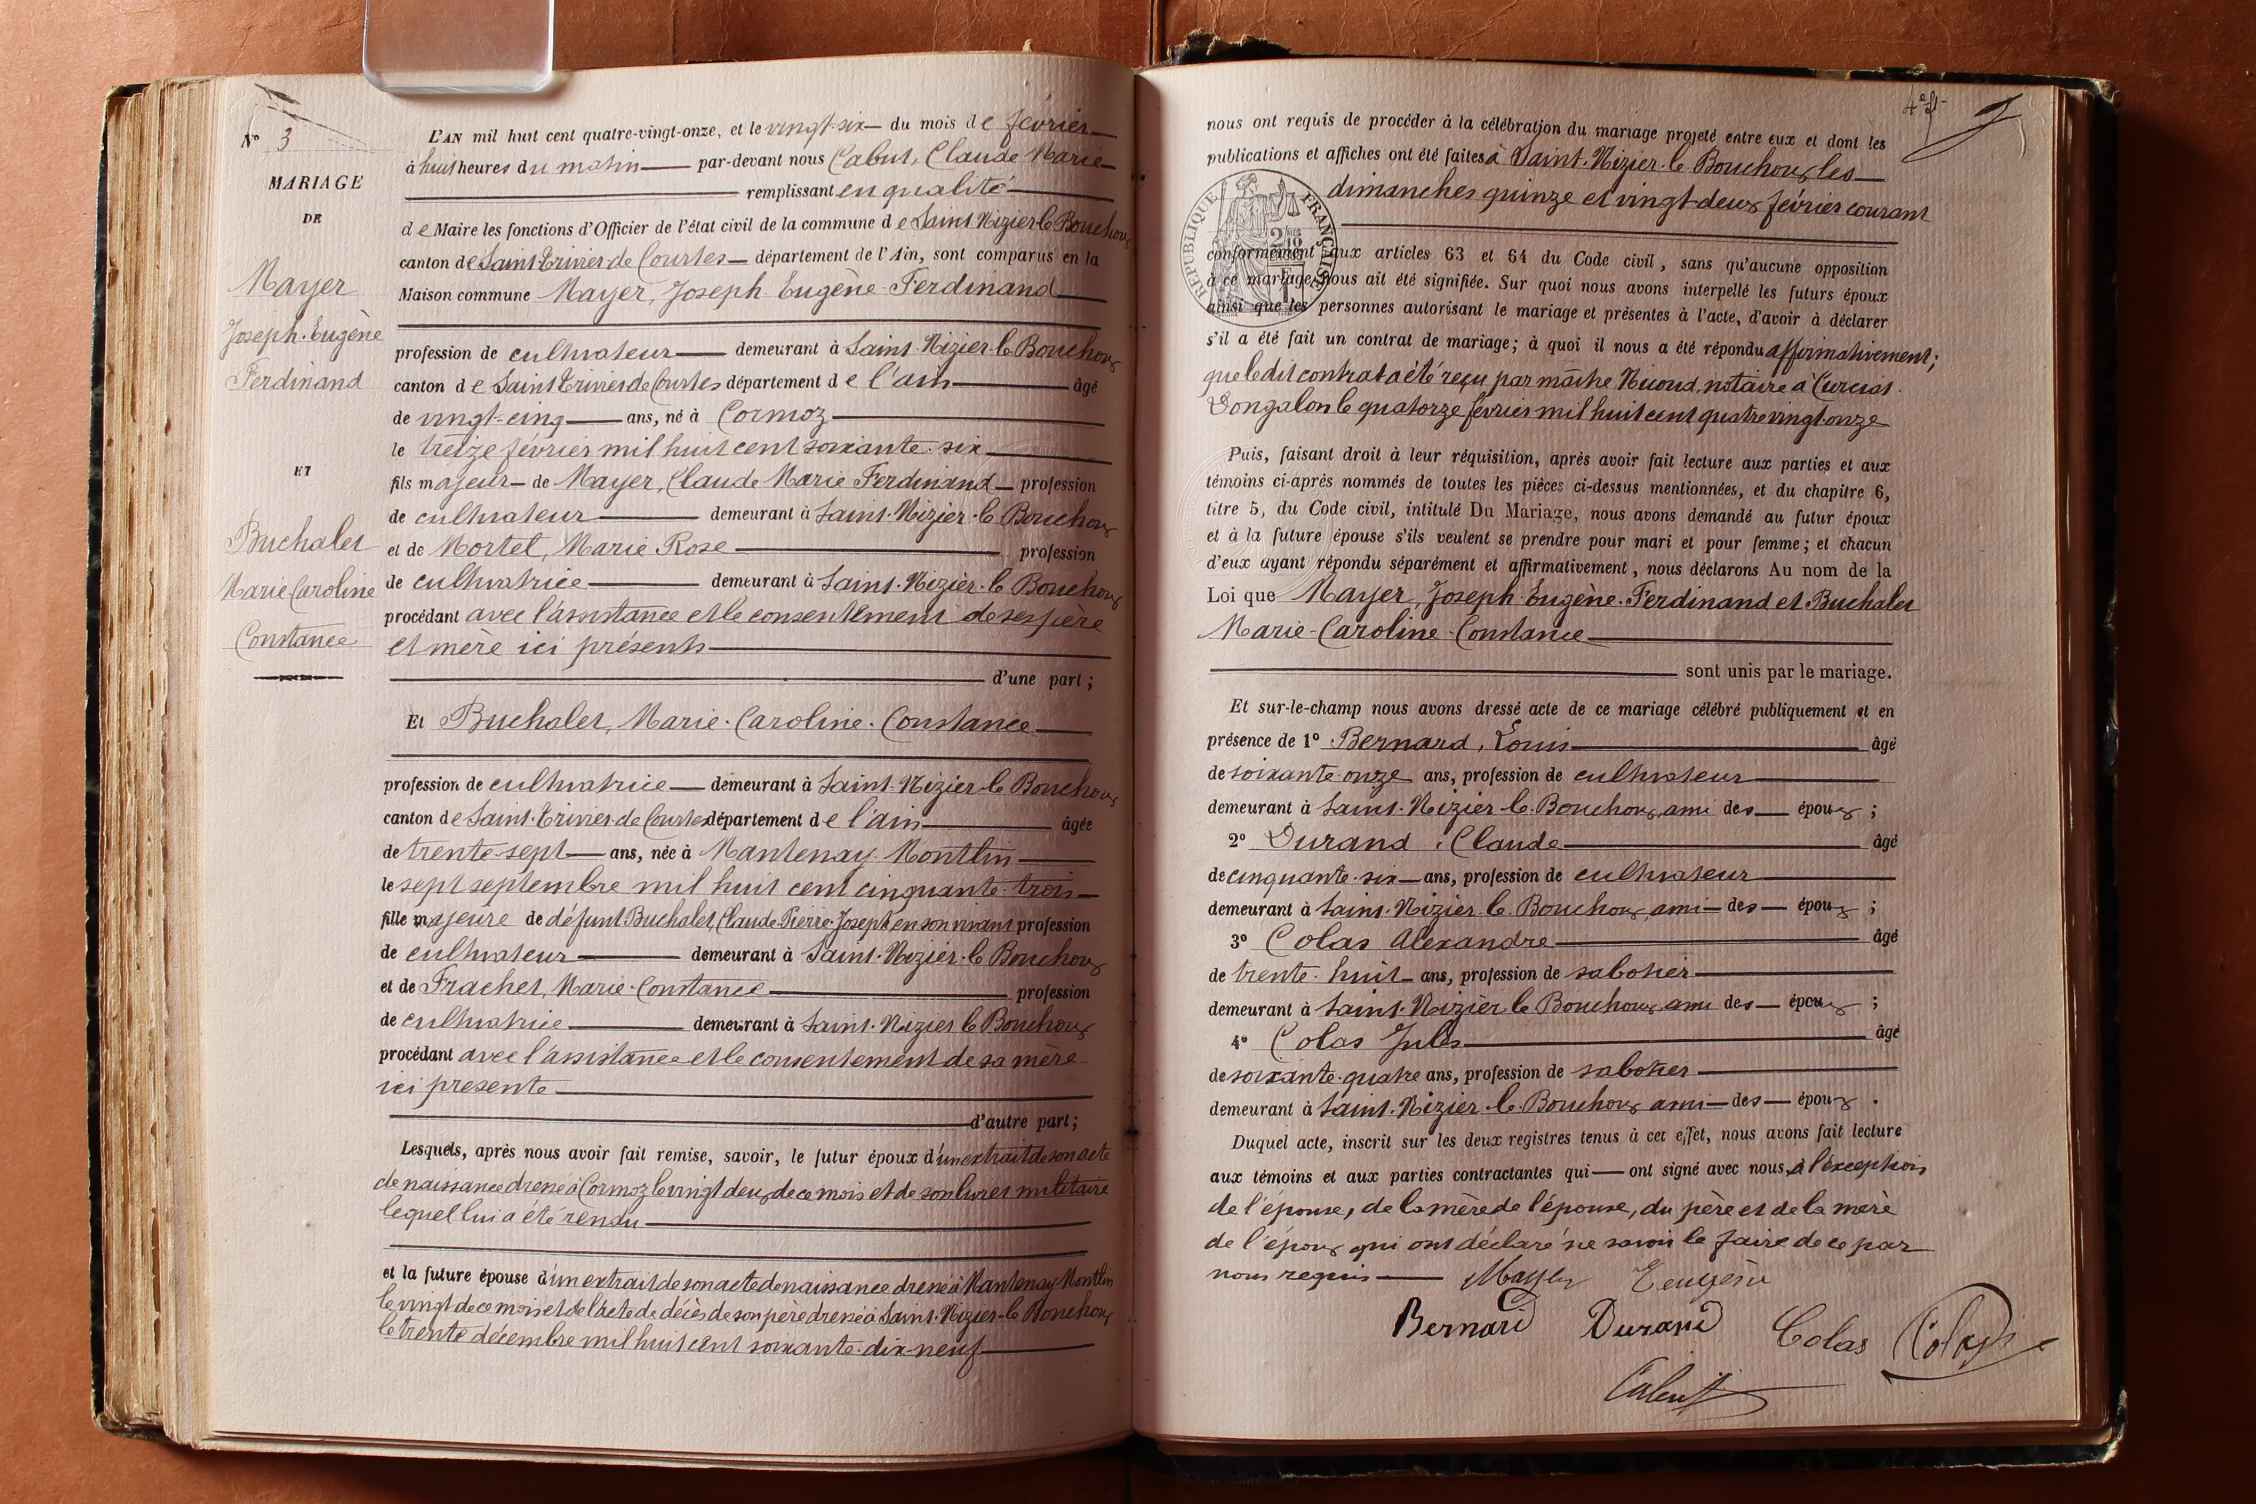 N° 3
MARIAGE
DE
Mayer
Joseph-Eugène
Ferdinand
ET
Buchalet
Marie-Caroline
Constance
L'AN mil huit cent quatre-vingt-onze, et le vingt-six du mois de février
à huit heures du matin par-devant nous Cabut, Claude Marie
remplissant en qualité
de Maire les fonctions d'Officier de l'état civil de la commune de Saint-Nizier-le-Bouchoux
canton de Saint-Trivier-de-Courtes département de l'Ain, sont comparus en la
Maison commune Mayer, Joseph-Eugène-Ferdinand
profession de cultivateur demeurant à Saint-Nizier-le-Bouchoux
canton de Saint-Trivier de Courtes département de l'ain âgé
de vingt-cinq ans, né à Cormoz
le treize février mil huit cent soixante-six
fils majeur de Mayer, Claude Marie Ferdinand profession
de cultivateur demeurant à Saint-Nizier-le-Bouchoux
et de Mortel, Marie Rose profession
de cultivatrice demeurant à Saint-Nizier-le-Bouchoux
procédant avec l'assistance et le consentement de ses père
et mère ici présents
d'une part ;
Et Buchalet, Marie-Caroline-Constance
profession de cultivatrice demeurant à Saint-Nizier-le-Bouchoux
canton de Saint-Trivier-de-Courtes département de l'ain âgée
de trente-sept ans, née à Mantenay-Montlin
le sept septembre mil huit cent cinquante-trois
fille majeure de défunt Buchalet, Claude-Pierre-Joseph en son vivant profession
de cultivateur demeurant à Saint-Nizier-le-Bouchoux
et de Frachet, Marie-Constance profession
de cultivatrice demeurant à Saint-Nizier le Bouchoux
procédant avec l'assistance et le consentement de sa mère
ici présente
d'autre part ;
Lesquels, après nous avoir fait remise, savoir, le futur époux d'un extrait de son acte
de naissance dressé à Cormoz le vingt deux de ce mois et de son livret militaire
lequel lui a été rendu
et la future épouse d'un extrait de son acte de naissance dressé à Mantenay-Montlin
le vingt de ce mois et de l'acte de décès de son père dressé à Saint-Nizier-le-Bouchoux
le trente décembre mil huit cent soixante-dix-neuf
nous ont requis de procéder à la célébration du mariage projeté entre eux et dont les
publications et affiches ont été faites à Saint-Nizier-le-Bouchoux, les
dimanches quinze et vingt-deux février courant
RÉPUBLIQUE FRANÇAISE
conformément aux articles 63 et 64 du Code civil, sans qu'aucune opposition
à ce mariage nous ait été signifiée. Sur quoi nous avons interpellé les futurs époux
ainsi que les personnes autorisant le mariage et présentes à l'acte, d'avoir à déclarer
s'il a été fait un contrat de mariage ; à quoi il nous a été répondu affirmativement ;
que le dit contrat a été reçu par maître Nicoud, notaire à Curciat
Dongalon le quatorze février mil huit cent quatre vingt-onze
Puis, faisant droit à leur réquisition, après avoir fait lecture aux parties et aux
témoins ci-après nommés de toutes les pièces ci-dessus mentionnées, et du chapitre 6,
titre 5, du Code civil, intitulé Du Mariage, nous avons demandé au futur époux
et à la future épouse s'ils veulent se prendre pour mari et pour femme ; et chacun
d'eux ayant répondu séparément et affirmativement, nous déclarons Au nom de la
Loi que Mayer, Joseph-Eugène-Ferdinand et Buchalet
Marie-Caroline-Constance
sont unis par le mariage.
Et sur-le-champ nous avons dressé acte de ce mariage célébré publiquement et en
présence de 1° Bernard, Louis âgé
de soixante-onze ans, profession de cultivateur
demeurant à Saint-Nizier-le-Bouchoux, ami des époux ;
2° Durand, Claude âgé
de cinquante-six ans, profession de cultivateur
demeurant à Saint-Nizier-le-Bouchoux, ami des époux ;
3° Colas Alexandre âgé
de trente-huit ans, profession de sabotier
demeurant à Saint-Nizier-le Bouchoux, ami des époux ;
4° Colas Jules âgé
de soixante-quatre ans, profession de sabotier
demeurant à Saint-Nizier-le-Bouchoux ami des époux.
Duquel acte, inscrit sur les deux registres tenus à cet effet, nous avons fait lecture
aux témoins et aux parties contractantes qui ont signé avec nous, à l'exception
de l'épouse, de la mère de l'épouse, du père et de la mère
de l'époux qui ont déclaré ne savoir le faire de ce par
nous requis
Bernard Durand Colas Colas
Cabut